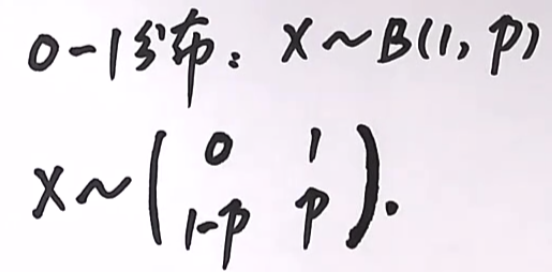 0-1分布：X~B(1, P)
X~(0 1
1-P P).